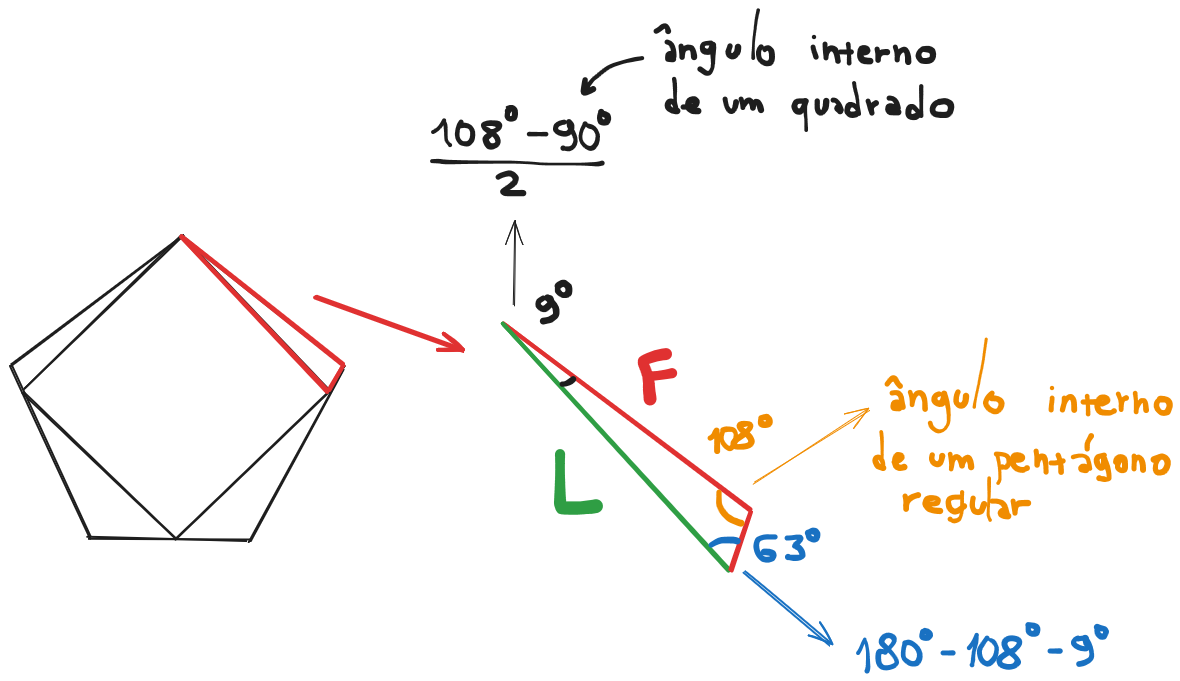 ângulo interno
de um quadrado
108° - 90°
2
9°
F
108°
L
63°
ângulo interno
de um pentágono
regular
180° - 108° - 9°